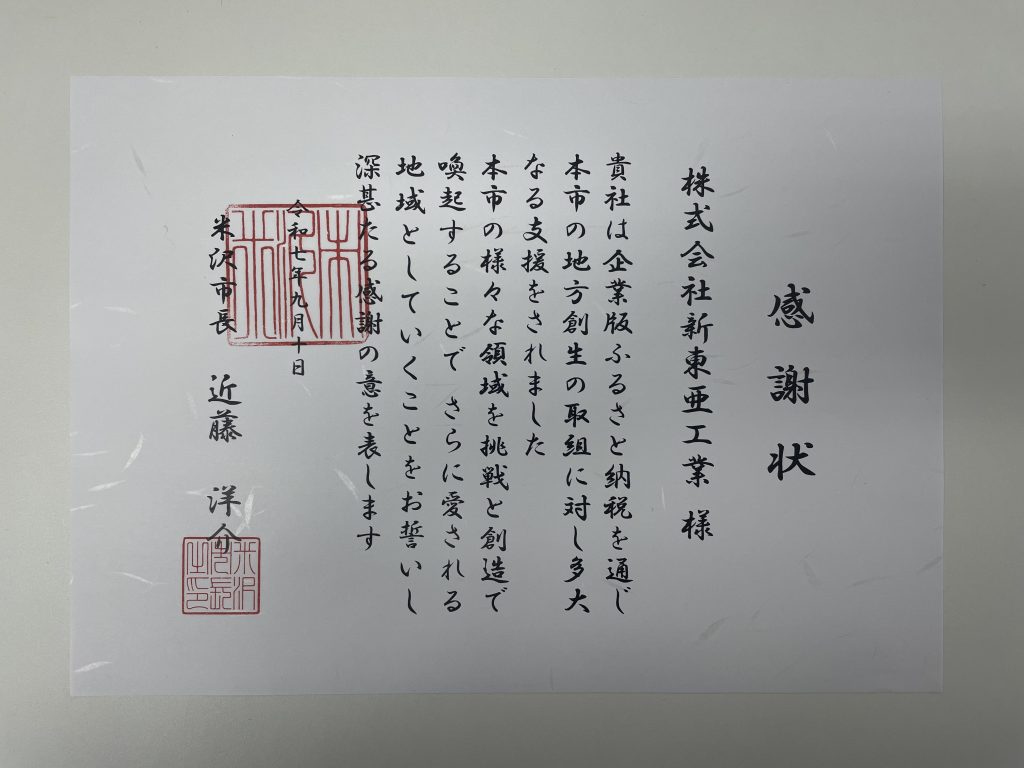 感謝状
株式会社新東亜工業 様
貴社は企業版ふるさと納税を通じ
本市の地方創生の取組に対し多大
なる支援をされました
本市の様々な領域を挑戦と創造で
喚起することで さらに愛される
地域としていくことをお誓いし
深甚たる感謝の意を表します
令和七年九月十日
米沢市長 近藤 洋介
米沢
市長
之印